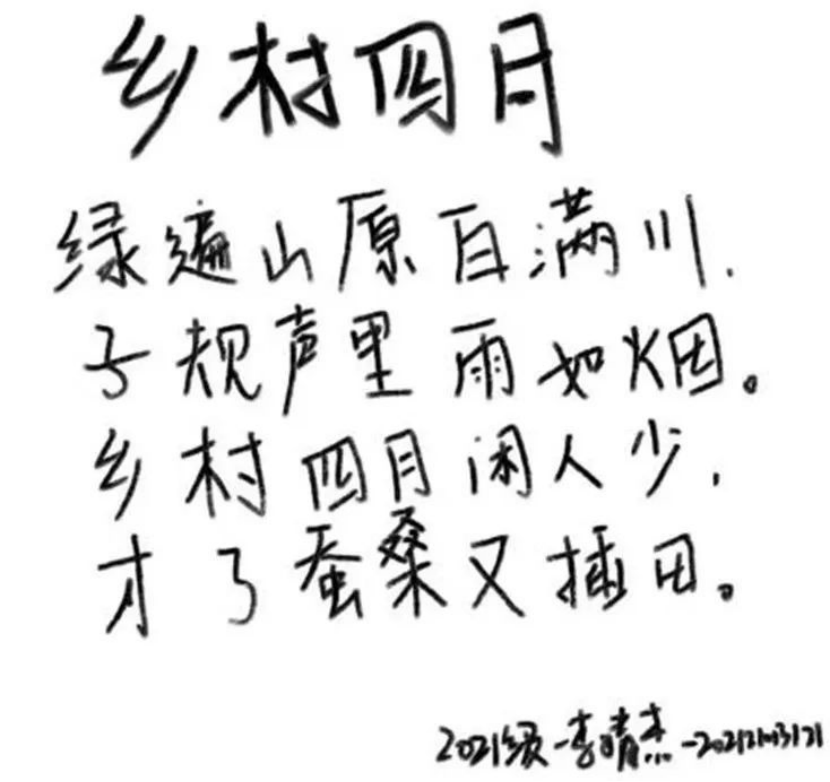 乡村四月
绿遍山原白满川.
子规声里雨如烟。
乡村四月闲人少,
才了蚕桑又插田。
2021级-李晴杰